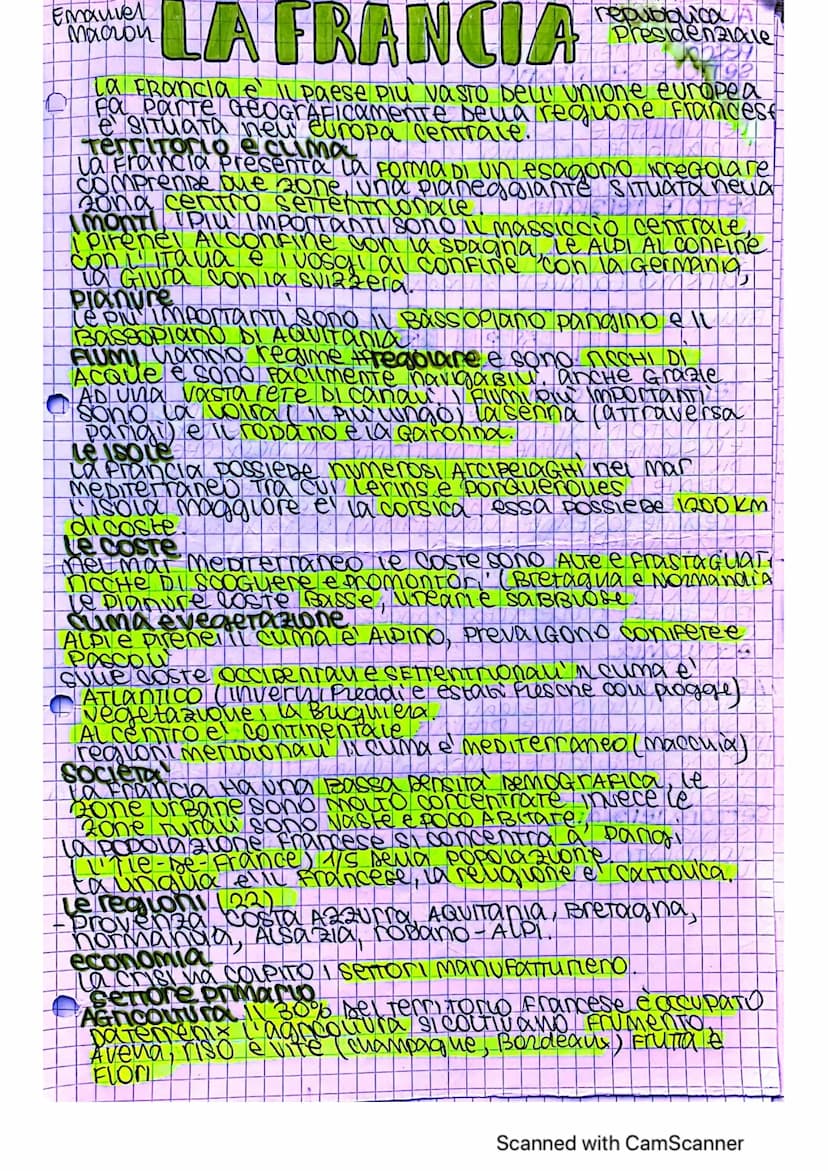 Emanuel
Macron
LA FRANCIA
repubblica
Presidenziale
La Francia e' il paese più vasto dell' Unione europea
Fa parte geograficamente della regione Francese
e' situata nell' europa centrale.
Territorio e clima
La Francia presenta la forma di un esagono irregolare
comprende due zone, una pianeggiante situata nella
zona centro settentrionale.
I monti i più importanti sono il massiccio centrale,
i pirenei al confine con la spagna, le Alpi al confine
con l'italia e i vosgi al confine con la Germania,
la Giura con la svizzera.
pianure
Le più importanti sono il Bassopiano parigino e il
Bassopiano di Aquitania
Fiumi hanno regime regolare e sono ricchi di
acque e sono facilmente navigabili. anche grazie
ad una vasta rete di canali i fiumi più importanti
sono la loira (il più lungo) la senna (attraversa
parigi) e il rodano e la Garonna.
Le isole
La Francia possiede numerosi arcipelaghi nel mar
mediterraneo tra cui Lerins e porquerolles
L'isola maggiore e' la corsica, essa possiede 1200 km
di coste.
Le coste
nel mar mediterraneo le coste sono alte e frastagliate
ricche di scogliere e promontori (Bretagna e Normandia
le pianure coste basse, lineari e sabbiose.
clima e vegetazione
Alpi e pirenei il clima e' alpino, prevalgono conifere e
pascoli
sulle coste occidentali e settentrionali il clima e'
atlantico (inverni freddi e estati fresche con piogge)
vegetazione: la Brughiera
Al centro e' continentale
regioni meridionali il clima e' mediterraneo (macchia)
società'
La Francia ha una bassa densità demografica, le
zone urbane sono molto concentrate invece le
zone rurali sono vaste e poco abitate,
La popolazione francese si concentra a parigi
l'ile-de-france) 1/5 della popolazione.
La lingua e' il francese, la religione e' cattolica.
Le regioni (22)
-provenza costa Azzurra, Aquitania, Bretagna,
normandia, Alsazia, rodano-Alpi.
economia
La crisi ha colpito i settori manufatturiero.
settore primario
Agricoltura il 30% del territorio francese è occupato
l'agricoltura si coltivano frumento,
Avena, riso e vite (champagne, Bordeaux) Frutta e
Fiori
Scanned with CamScanner